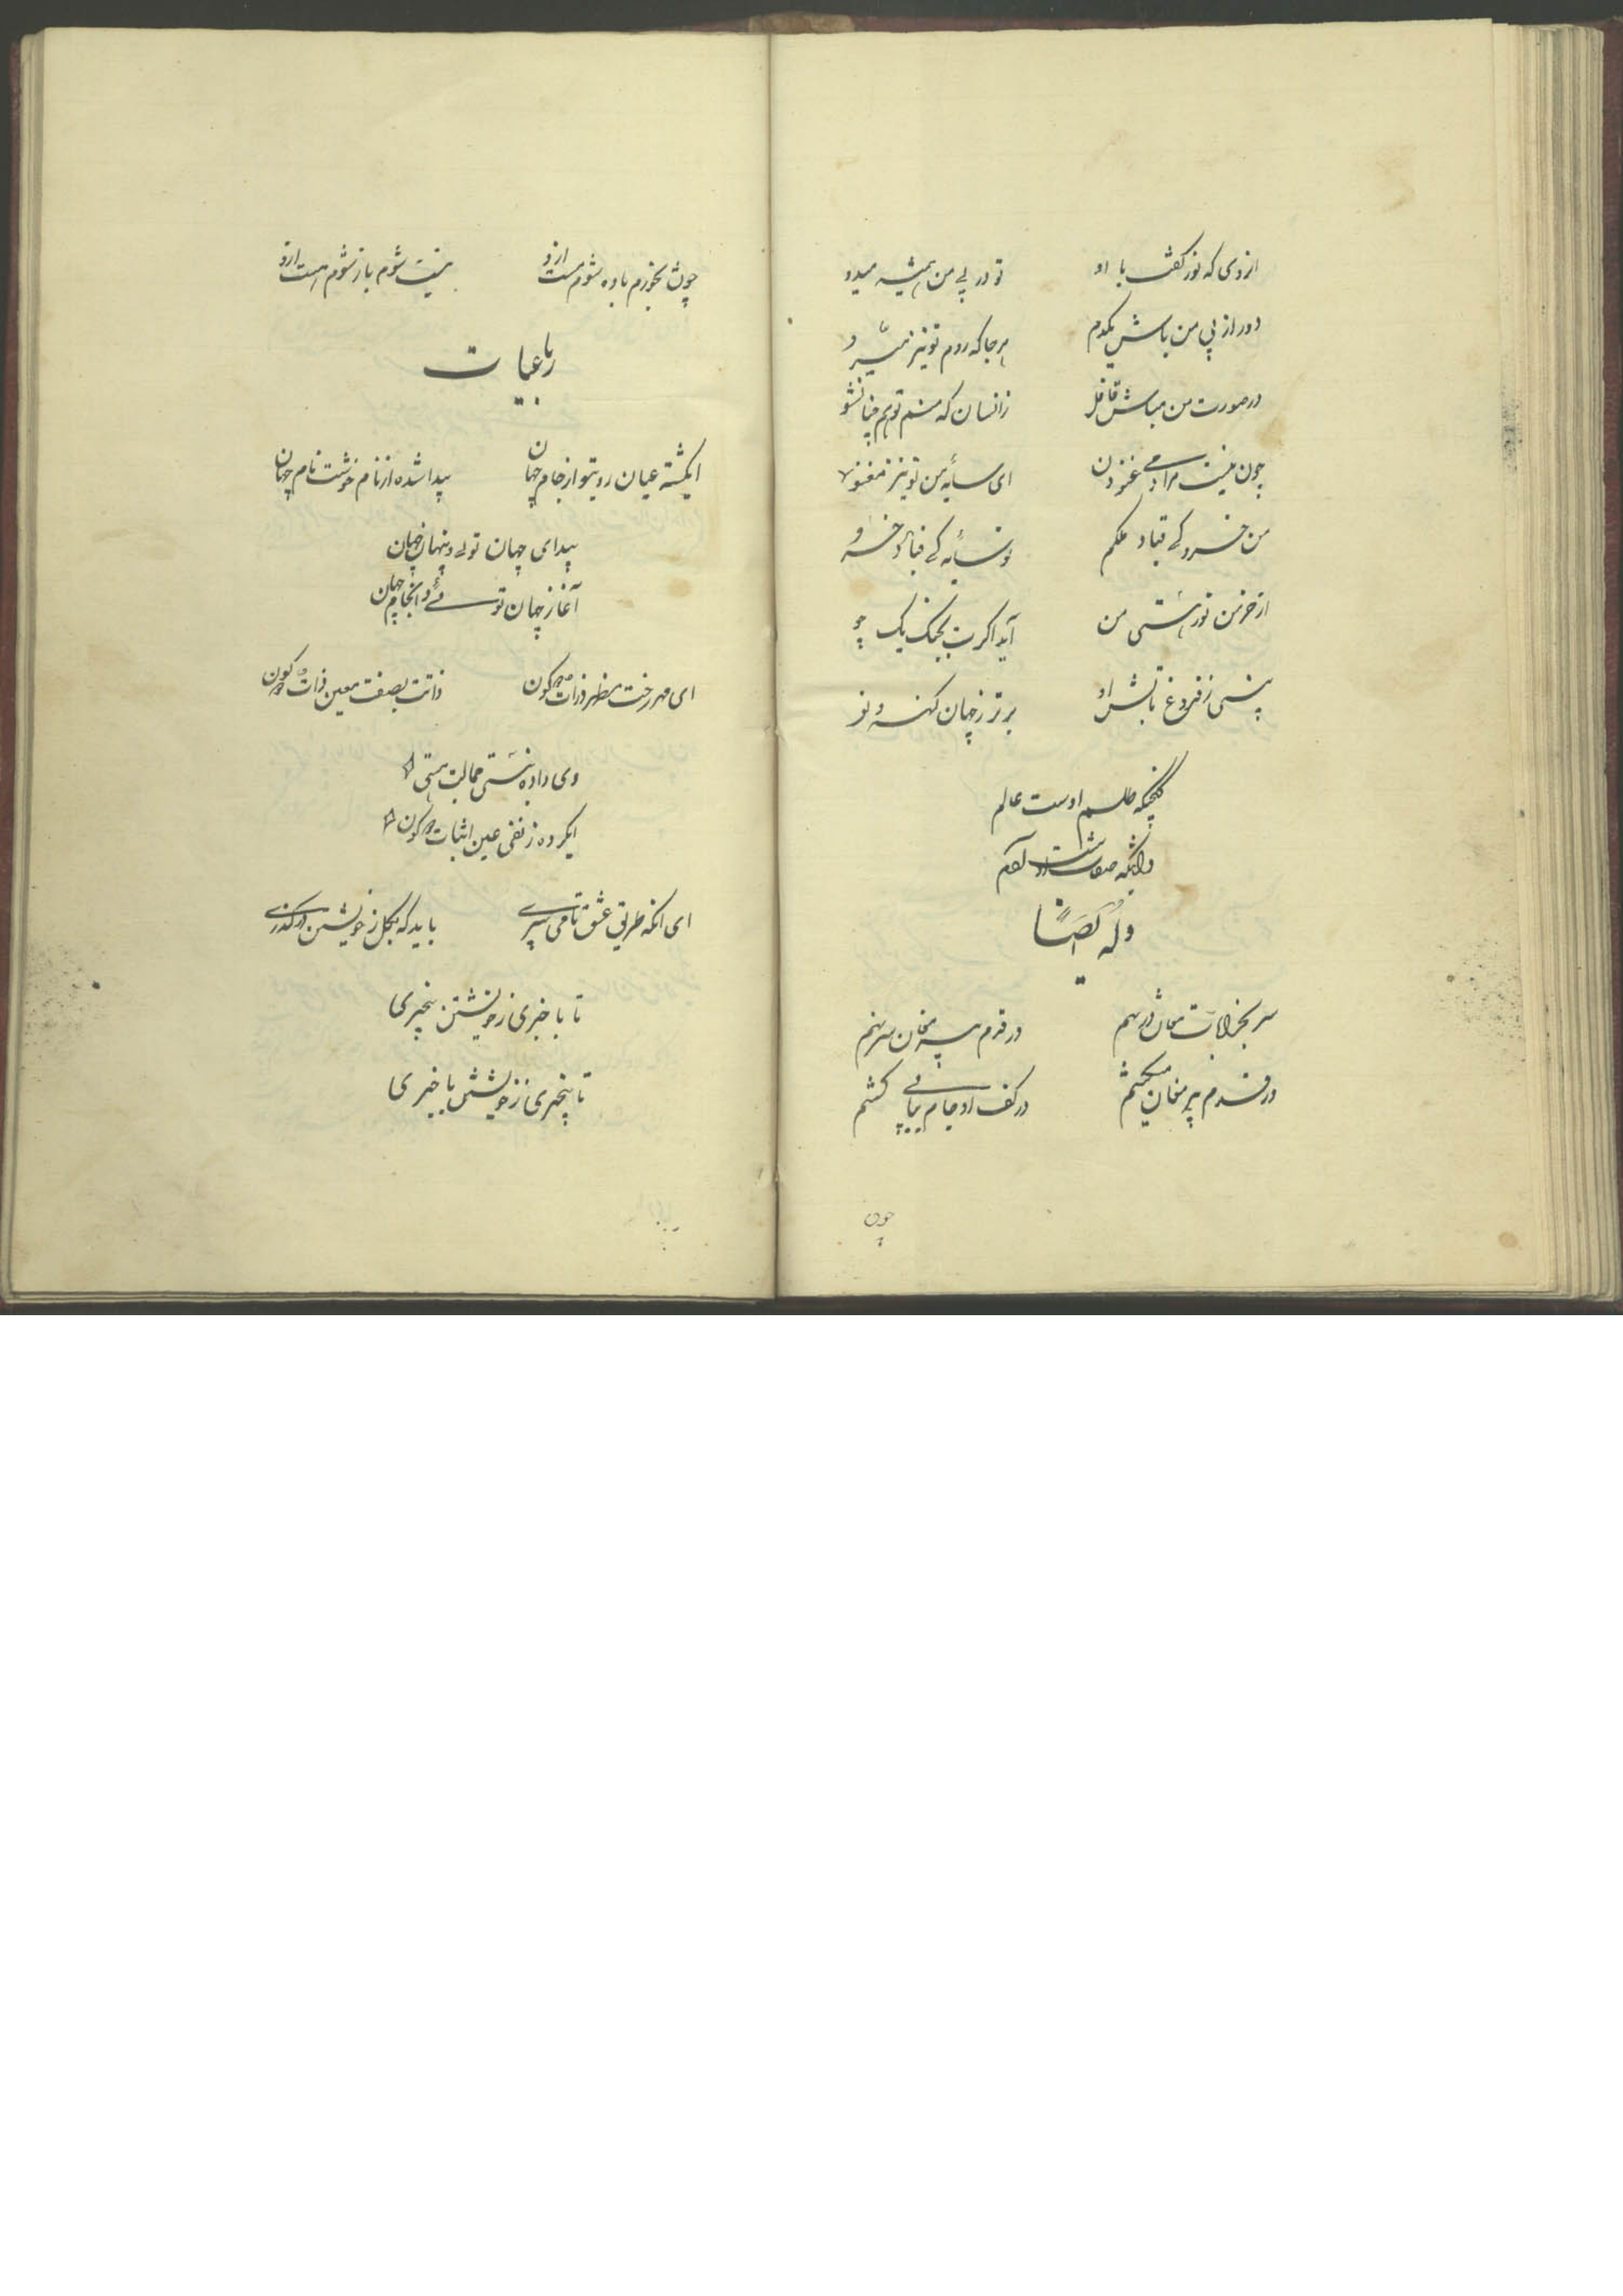 از وی که نور گفت با او تو در پی من همیشه میدو
دور از پی من باش یکدم هر جا که روم تو نیز میرو
در صورت من مباش قافل زانسان که منم تو هم چنان شو
چون نیست مرا دمی غنودن ای سایه من تو نیز مغنو
من خسرو کے قباد ملکم تو سایه کے قباد و خسرو
از خرمن نور هستی من آید اگرت بچنک یک جو
بینی ز فروغ تابش او برتر ز جهان کهنه و نو
گنجیکه طلسم اوست عالم
ذاتیکه صفات اوست آدم
وله ایضًا
سر بخرابات مغان در نهم در قدم پیر مغان سر نهم
در قدم پیر مغان میکشم در کف او جام پیاپی کشم
چون
چون بخورم باده شوم مست ازو نیست شوم باز شوم هست ازو
رباعیات
ایگشته عیان روی تو از جام جهان پیدا شده از نام خوشت نام جهان
پیدای جهان توئی و پنهان جهان
آغاز جهان توئی و انجام جهان
ای مهر رخت مظهر ذرات دو کون ذاتت بصفت معین ذات دو کون
وی داده نیستی حمالت هستی
ایکرده ز نفی عین اثبات دو کون
ای انکه طریق عشق ما می سپری باید که بکل ز خویشتن درگذری
تا با خبری ز خویشتن بیخبری
تا بیخبری ز خویشتن با خبری